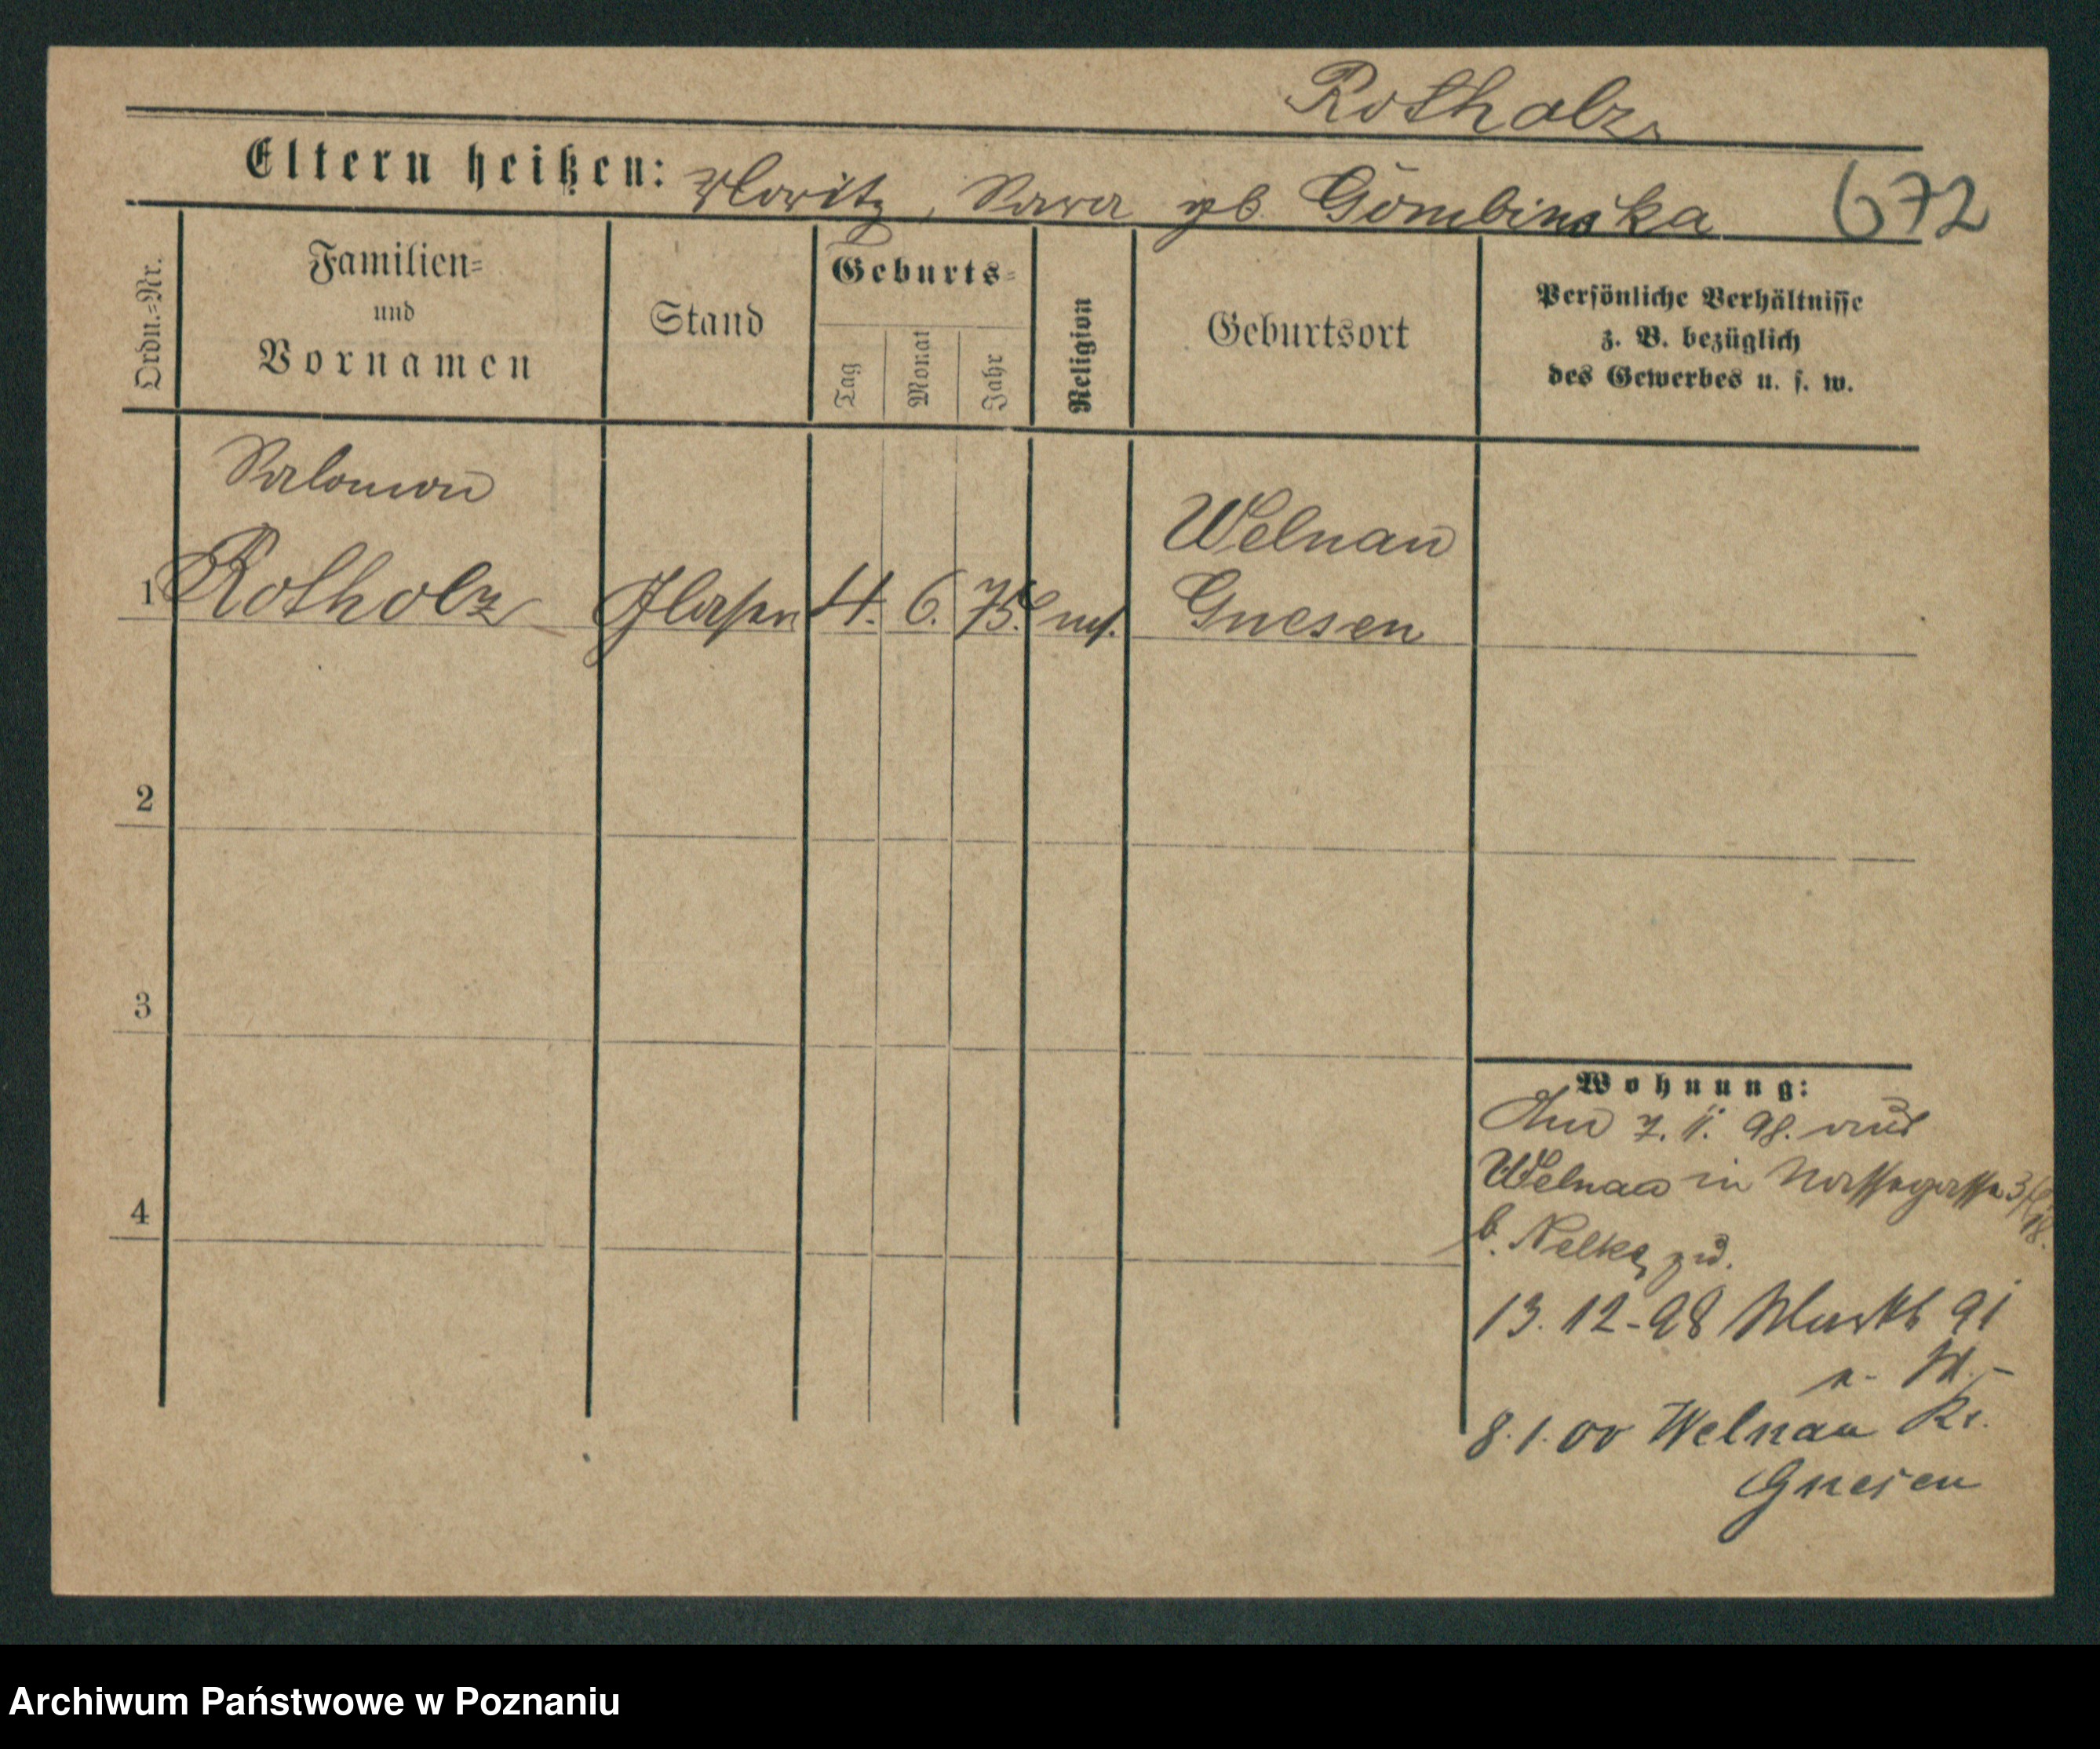 Rotholz
Eltern heißen: Moritz, Sara gb. Gombinska 672
Ordn.=Nr.
Familien=
und
Vornamen
Stand
Geburts=
Tag
Monat
Jahr
Religion
Geburtsort
Persönliche Verhältnisse
z. B. bezüglich
des Gewerbes u. s. w.
Salomon
Welnau
1 Rotholz Glaser 4. 6. 75. mos. Gnesen
2
3
4
Wohnung:
Am 7. 11. 98. aus
Welnau in Nassegasse 3
b. Nelke
13. 12-98 Markt 91
8. 1. 00 Welnau Kr.
Gnesen
Archiwum Państwowe w Poznaniu